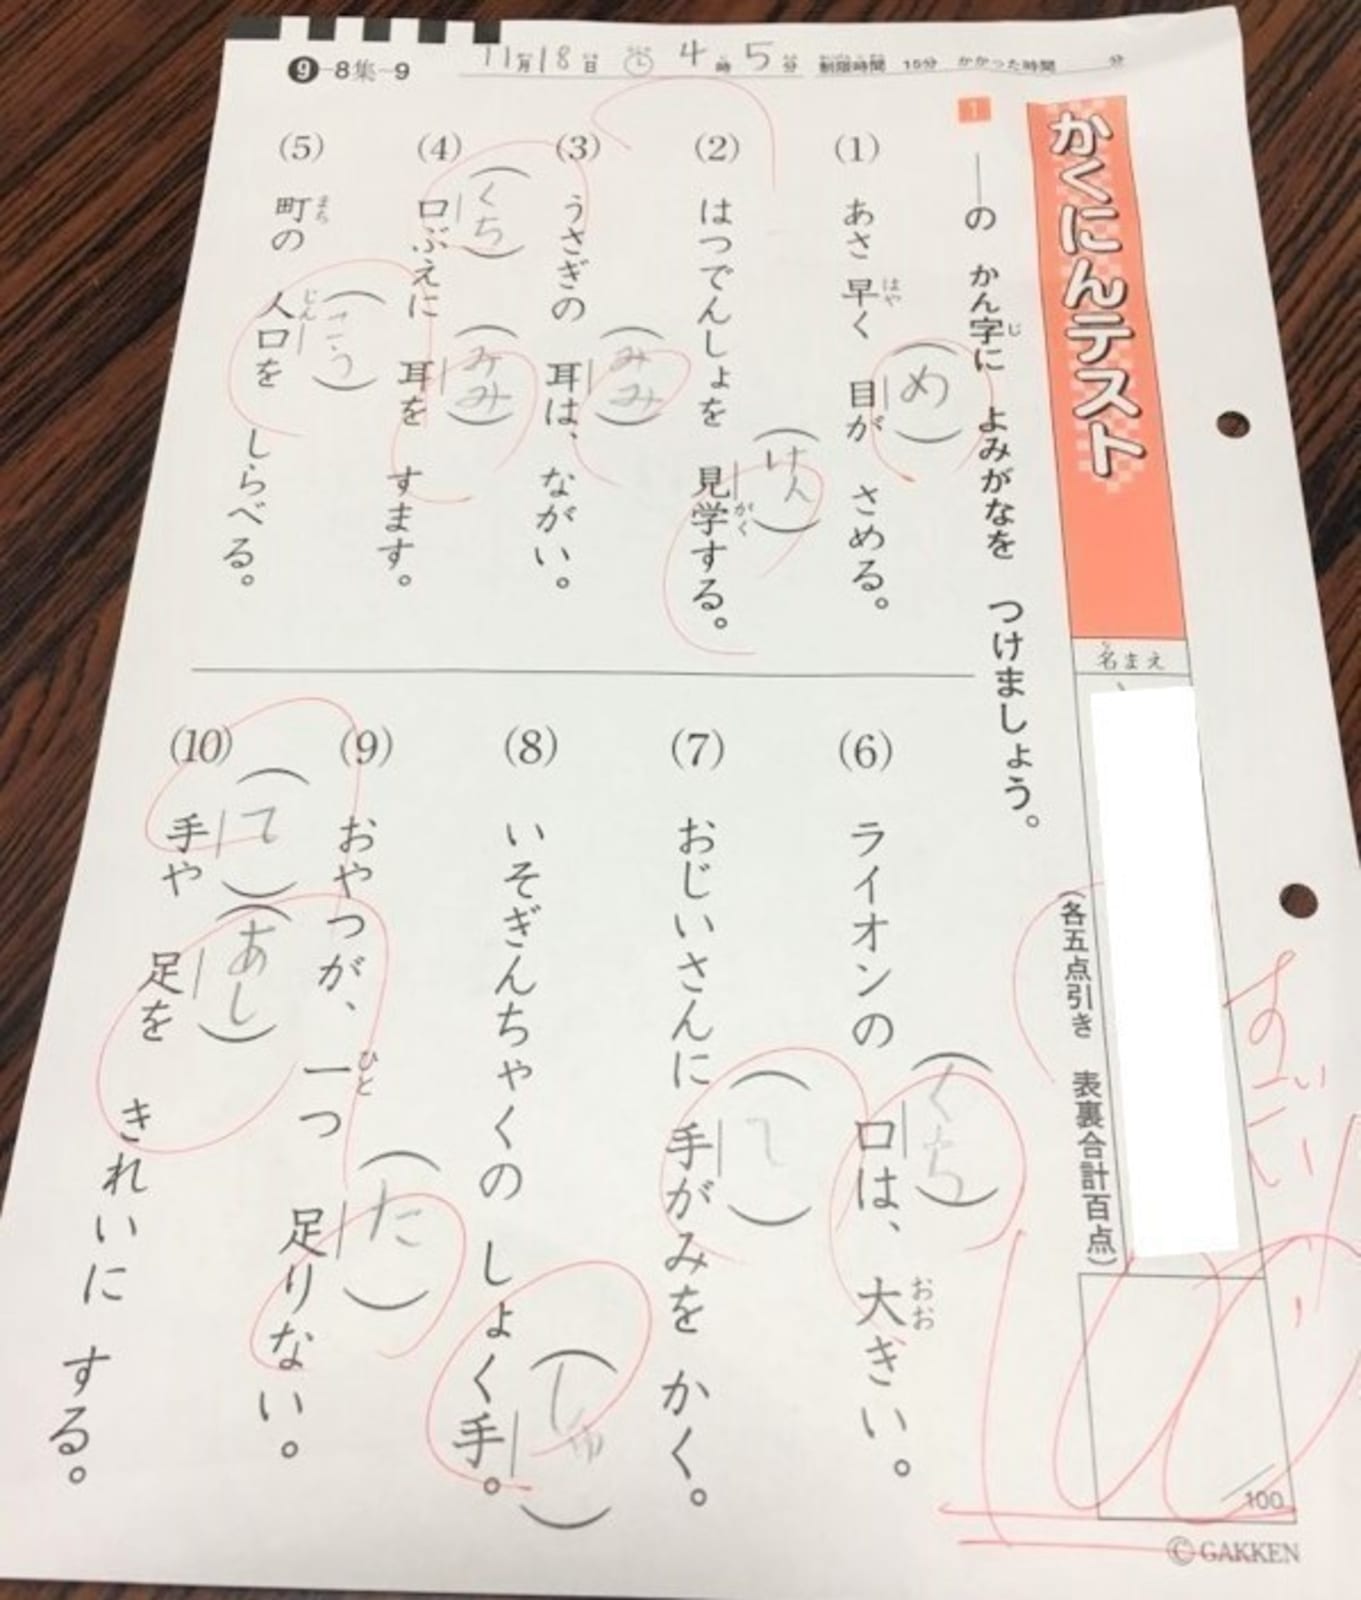 ❾-8集-9
11月18日 4時5分 制限時間 15分 かかった時間 分
かくにんテスト
名まえ
1
――の かん字に よみがなを つけましょう。
じ
(各五点引き 表裏合計百点)
(1) あさ 早く 目が さめる。
はや
(め)
(2) はつでんしょを 見学する。
(けん)
がく
(3) うさぎの 耳は、 ながい。
(みみ)
(4) 口ぶえに 耳を すます。
(くち)
(みみ)
(5) 町の 人口を しらべる。
まち
じん
(こう)
(6) ライオンの 口は、 大きい。
(くち)
おお
(7) おじいさんに 手がみを かく。
(て)
(8) いそぎんちゃくの しょく手。
(しゅ)
(9) おやつが、 一つ 足りない。
ひと
(た)
(10) 手や 足を きれいに する。
(て)
(あし)
すごい
100
/100
©GAKKEN